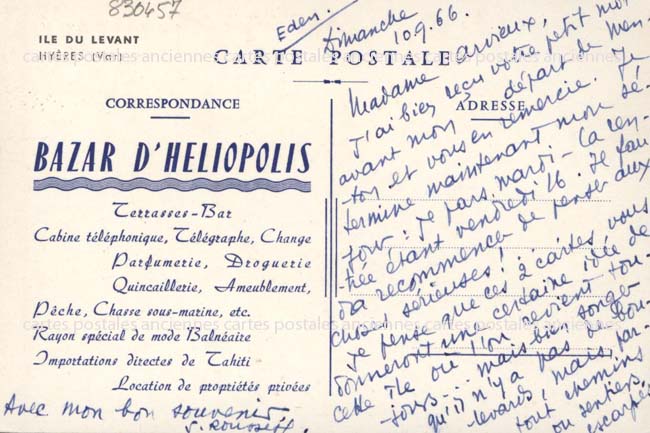 830457
ILE DU LEVANT
HYÈRES (Var)
CARTE POSTALE
CORRESPONDANCE
ADRESSE
BAZAR D'HELIOPOLIS
Terrasses-Bar
Cabine téléphonique, Télégraphe, Change
Parfumerie, Droguerie
Quincaillerie, Ameublement,
Pêche, Chasse sous-marine, etc.
Rayon spécial de mode Balnéaire
Importations directes de Tahiti
Location de propriétés privées
Eden.
Dimanche
10.9.66.
Madame
J'ai bien reçu votre petit mot
avant mon départ de Men-
ton et vous en remercie. Je
termine maintenant mon sé-
jour : je pars mardi - la ren-
trée étant vendredi 16. Il fau-
dra recommencer de penser aux
choses sérieuses !
Je pense que ces 2 cartes, vous
donneront une certaine idée de
cette île où l'on revient tou-
jours... mais bien songer
qu'il n'y a pas de bou-
levards, mais par-
tout chemins
ou sentiers
escarpés
Avec mon bon souvenir.
cartes postales anciennes cartes postales anciennes cartes postales anciennes
cartes postales anciennes cartes postales anciennes cartes postales anciennes